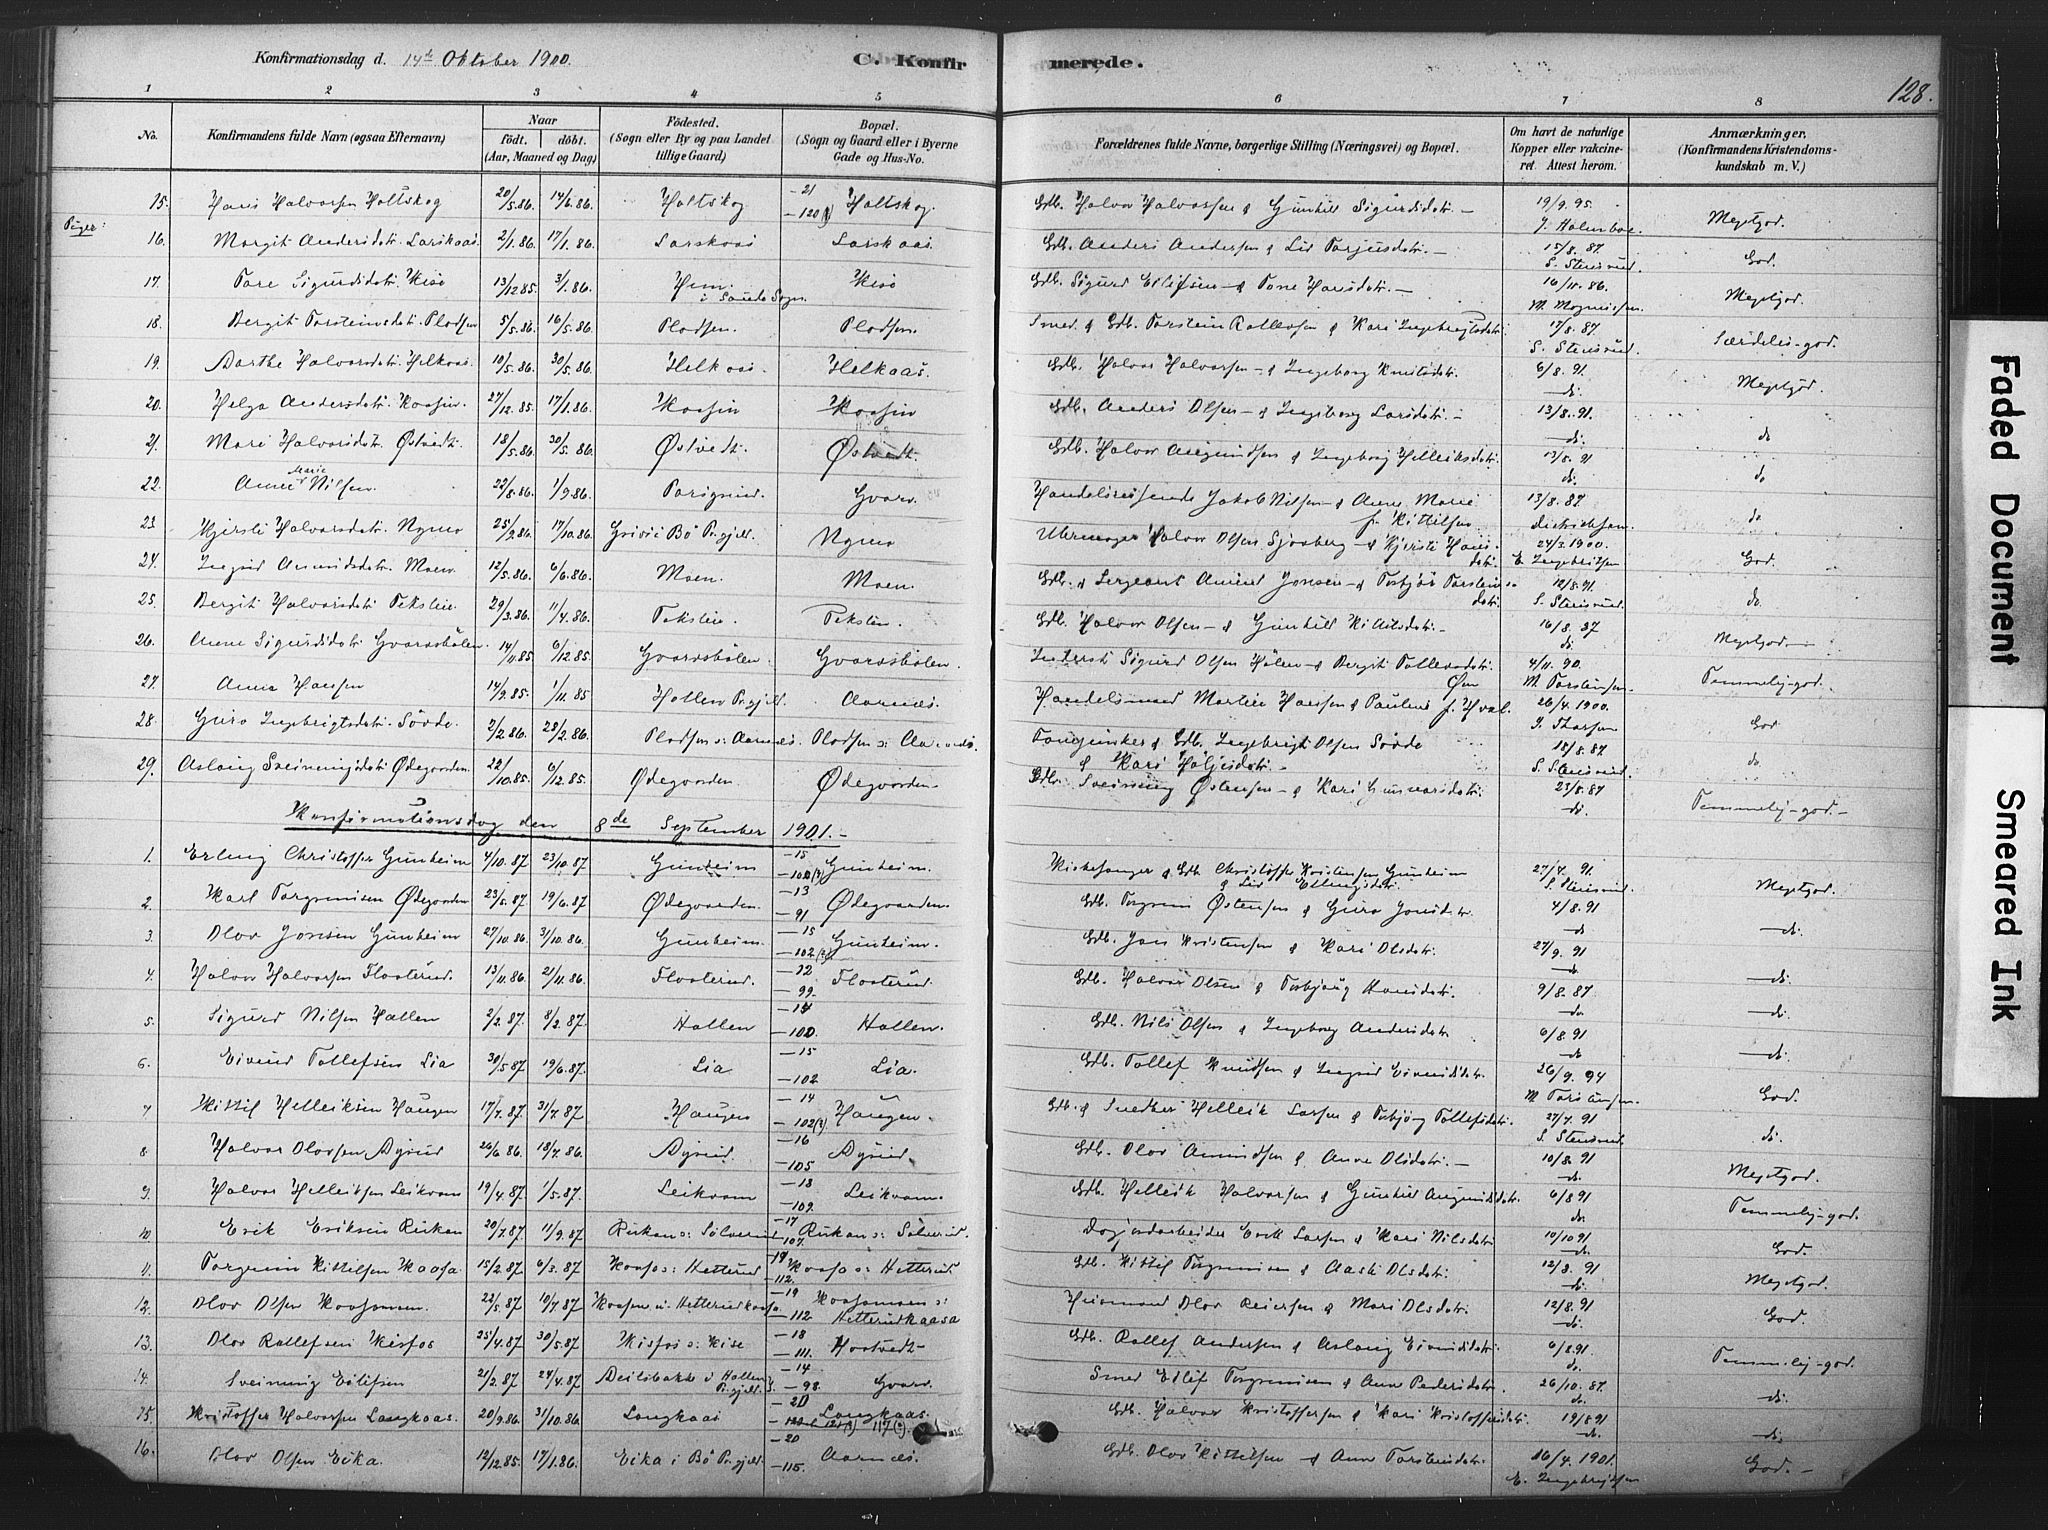 Konfirmationsdag d. 14de Oktober 1900. C. Konfirmerede. 128.
1 2 3 4 5 6 7 8
No. Konfirmandens fulde Navn (ogsaa Efternavn) Naar født. døbt. (Aar, Maaned og Dag) Fødested. (Sogn eller By og paa Landet tillige Gaard) Bopæl. (Sogn og Gaard eller i Byerne Gade og Hus-No. Forældrenes fulde Navne, borgerlige Stilling (Næringsvei) og Bopæl. Om havt de naturlige Kopper eller vakcineret. Attest herom. Anmærkninger. (Konfirmandens Kristendomskundskab m. V.)
15. Hans Halvorsen Holtskog 20/5.86. 14/6.86. Holtskog —21 —120 Holtskog. Gdb. Halvor Halvorsen & Gunhild Sigurdsdatr. — 19/9.95. J. Holmboe. Megetgod.
Piger:
16. Margit Andersdatr. Larskaas. 2/1.86. 17/1.86. Larskaas Larskaas. Gdb. Anders Andersen & Liv Torjusdatr. — 15/8.87. S. Stensrud. God.
17. Tore Sigurdsdatr. Kise 13/12 85. 3/1.86. Hem i Saude Sogn. Kise Gdb. Sigurd Eilifsen & Tone Hansdatr. — 16/11.86. M. Magnussen. Megetgod.
18. Bergit Torsteinsdatr. Plodsen 5/5.86. 16/5.86. Plodsen. Plodsen. Smed & Gdb. Torstein Rollefsen & Kari Ingebrigtsdatr. 17/8.87. S. Stensrud. Særdeles-god.
19. Aarthe Halvorsdatr. Helkaas. 10/5.86. 30/5.86. Helkaas. Helkaas. Gdb. Halvor Halvorsen & Ingeborg Knutsdatr. 6/8.91. —do. Megetgod.
20. Helga Andersdatr. Kaasin. 27/12.85. 17/1.86. Kaasin Kaasin Gdb. Anders Olsen & Ingeborg Larsdatr. — 13/8.91. —do. do
21. Mari Halvorsdatr. Østvedt. 18/5.86. 30/5.86. Østvedt. Østvedt. Gdb. Halvor Aasmundsen & Ingeborg Helleiksdatr. 13/8.91 do. do
22. Anne Marie Nilsen. 22/8.86. 1/9.86. Gvarv. Handelsreisende Jakob Nilsen & Anne Marie f. Kittilsen 13/8.87. Dietrichson. do.
23. Kjersti Halvorsdatr. Nymo 25/9.86. 17/10.86. Grivi i Bø Prgjeld. Nymo Uhrmager Halvor Olsen Sjoaberg & Kjersti Hansdatr. 24/3.1900. E. Ingebrigtsen God.
24. Ingrid Amundsdatr. Moen. 12/5.86. 6/6.86. Moen. Moen. Gdb. & Sergeant Amund Jonsen & Torbjør Torsteinsdatr. 12/8.91. S. Stensrud. do.
25. Bergit Halvorsdatr. Tekslie. 29/3.86. 11/4.86. Tekslie. Tekslie. Gdb. Halvor Olsen & Gunhild Kittilsdatr. 16/8.87 do. Megetgod.
26. Anne Sigurdsdatr. Gvarvsbølen. 14/11.85. 6/12 85. Gvarvsbølen. Gvarvsbølen. Inderst Sigurd Olsen Hølen & Bergit Tollevsdatr. 4/11.90. M. Torstensen. Temmelig-god.
27. Anna Hansen 14/9.85. 1/11.85 Hollen Prgjeld. Aarnes. Handelsmand Martin Hansen & Pauline f. Hval. 26/4.1900. J. Tharsen God
28. Guro Ingebrigtsdatr. Søvde. 2/2.86. 28/2.86. Plodsen s: Aarnes. Plodsen s: Aarnes. Fanejunker & Gdb. Ingebrigt Olsen Søvde & Kari Høljesdatr. — 18/8.87 S. Stensrud. do.
29. Aslaug Sveinungsdatr. Ødegaarden. 22/10.85. 6/12.85. Ødegaarden. Ødegaarden. Gdb. Sveinung Østensen & Kari Gunnarsdatr. 23/8.87 do. Temmelig-god.—
Konfirmationsdag den 8de September 1901.—
1. Erling Christoffer Gunheim 4/10.87 23/10.87 Gunheim —15 —101(3) Gunheim. Kirkesanger & Gdb. Christoffer Kristensen Gunheim & Liv Ellingsdatr. 27/4.91. S. Stensrud. Megetgod.
2. Karl Torgrimsen Ødegaarden 23/5.87 19/6.87 Ødegaarden. —13 —91 Ødegaarden. Gdb. Torgrim Østensen & Guro Jonsdatr. 4/8.91 —do —do.
3. Olov Jonsen Gunheim 27/10.86. 31/10.86. Gunheim. —15 —102(2) Gunheim. Gdb. Jon Kristensen & Kari Olsdatr. 27/9.91 —do.
4. Halvor Halvorsen Flaaterud. 13/11.86. 21/11.86. Flaaterud. —12 —99. Flaaterud. Gdb. Halvor Olsen & Torbjørg Hansdatr. 9/8.87. —do. —do.
5. Sigurd Nilsen Hallen 2/2.87. 8/2.87. Hallen —14 —100. Hallen. Gdb. Nils Olsen & Ingeborg Andersdatr. 6/8.91 —do. —do.
6. Eivind Tollefsen Lia 30/5.87 19/6.87. Lia —15 —102. Lia. Gdb. Tollef Knudsen & Ingrid Eivindsdatr. 26/9.94 M. Torstensen. God.
7. Kittil Helleiksen Haugen 17/7.87. 31/7.87 Haugen —14 —102(3) Haugen. Gdb. & Snedker Helleik Larsen & Torbjørg Tollefsdatr. 27/7.91 S. Stensrud. do.
8. Halvor Olovsen Aysud 26/6.86. 18/7.86. Aysud. —16 —105 Aysud. Gdb. Olov Amundsen & Anne Olsdatr. — 10/8.91 —do. Megetgod.
9. Halvor Helleiksen Leikvam 19/4.87. 1/5.87. Leikvam —18 —109. Leikvam. Gdb. Helleik Halvorsen & Gunhild Aasmundsdatr. 6/8 91 do. Temmelig-god.
10. Erik Eriksen Rukan 20/7.87. 11/9.87. Rukan s: Sølverud —17 —107. Rukan s: Sølverud. Dagarbeider Erik Larsen & Kari Nilsdatr. 10/10 91 —do. God.
11. Torgrim Kittelsen Kaasa 15/2.87. 6/3.87 Kaasa s: Hetterud —19 —112. Kaasa s: Hetterud Gdb. Kittil Torgrimsen & Aaste Olsdatr. 12/8.91 —do. Megetgod.
12. Olov Olsen Kaasamoen. 22/5.87 10/7.87 Kaasen u. Hetterudkaasa. —19 —112 Kaasamoen s: Hetterudkaasa Husmand Olov Reiersen & Mari Olsdatr. 12/8.91 —do. God.
13. Olov Rollefsen Kisfos 25/4.87 30/5.87 Kisfos s: Kise —18 —111. Hoatvedt Gdb. Rollef Andersen & Aslaug Eivindsdatr. 6/8.91. do. Temmelig-god.
14. Sveinung Eilifsen 21/2.87 24/4.87 Deilsbakke i Hollen Prgjeld. —14 —98. Gvarv. Smed Eilif Torgrimsen & Anne Pedersdatr. 26/10.87. do.
15. Kristoffer Halvorsen Langkaas. 20/9.86. 31/10.86. Langkaas —20 117(3). Langkaas. Gdb. Halvor Kristoffersen & Kari Kristoffersdatr. 19/8.91 —do. do.
16. Olov Olsen Eika. 12/12.85. 17/1.86. Eika i Bø Prgjeld. —20 —115. Aarnes. Gdb. Olov Kittelsen & Anne Torsteinsdatr. 16/4.1901. E. Ingebrigtsen God.—
Faded Document
Smeared Ink